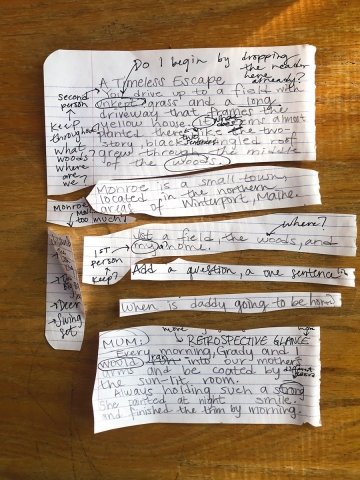 Do I begin by dropping
the reader
here
already?
A Timeless Escape
second
person
You drive up to a field with
unkept grass and a long
driveway that frames the
yellow house. It seems almost
planted there like the two-
story, black shingled roof
grew through the middle
of the woods.
Keep
throughout?
What
woods?
Where
are
we?
Monroe is a small town,
located in the northern
area of Winterport, Maine.
Monroe
too much?
Where?
Just a field, the woods, and
my home.
1st
person
Keep?
Add a question, a one sentence
When is daddy going to be home?
Deer
Swing
Set
MUM:
RETROSPECTIVE GLANCE
Every morning, Grady and
I would run into our mother's
arms and be coated by
the sun-lit room.
Always holding such a strong
smile.
She painted at night
and finished the trim by morning.